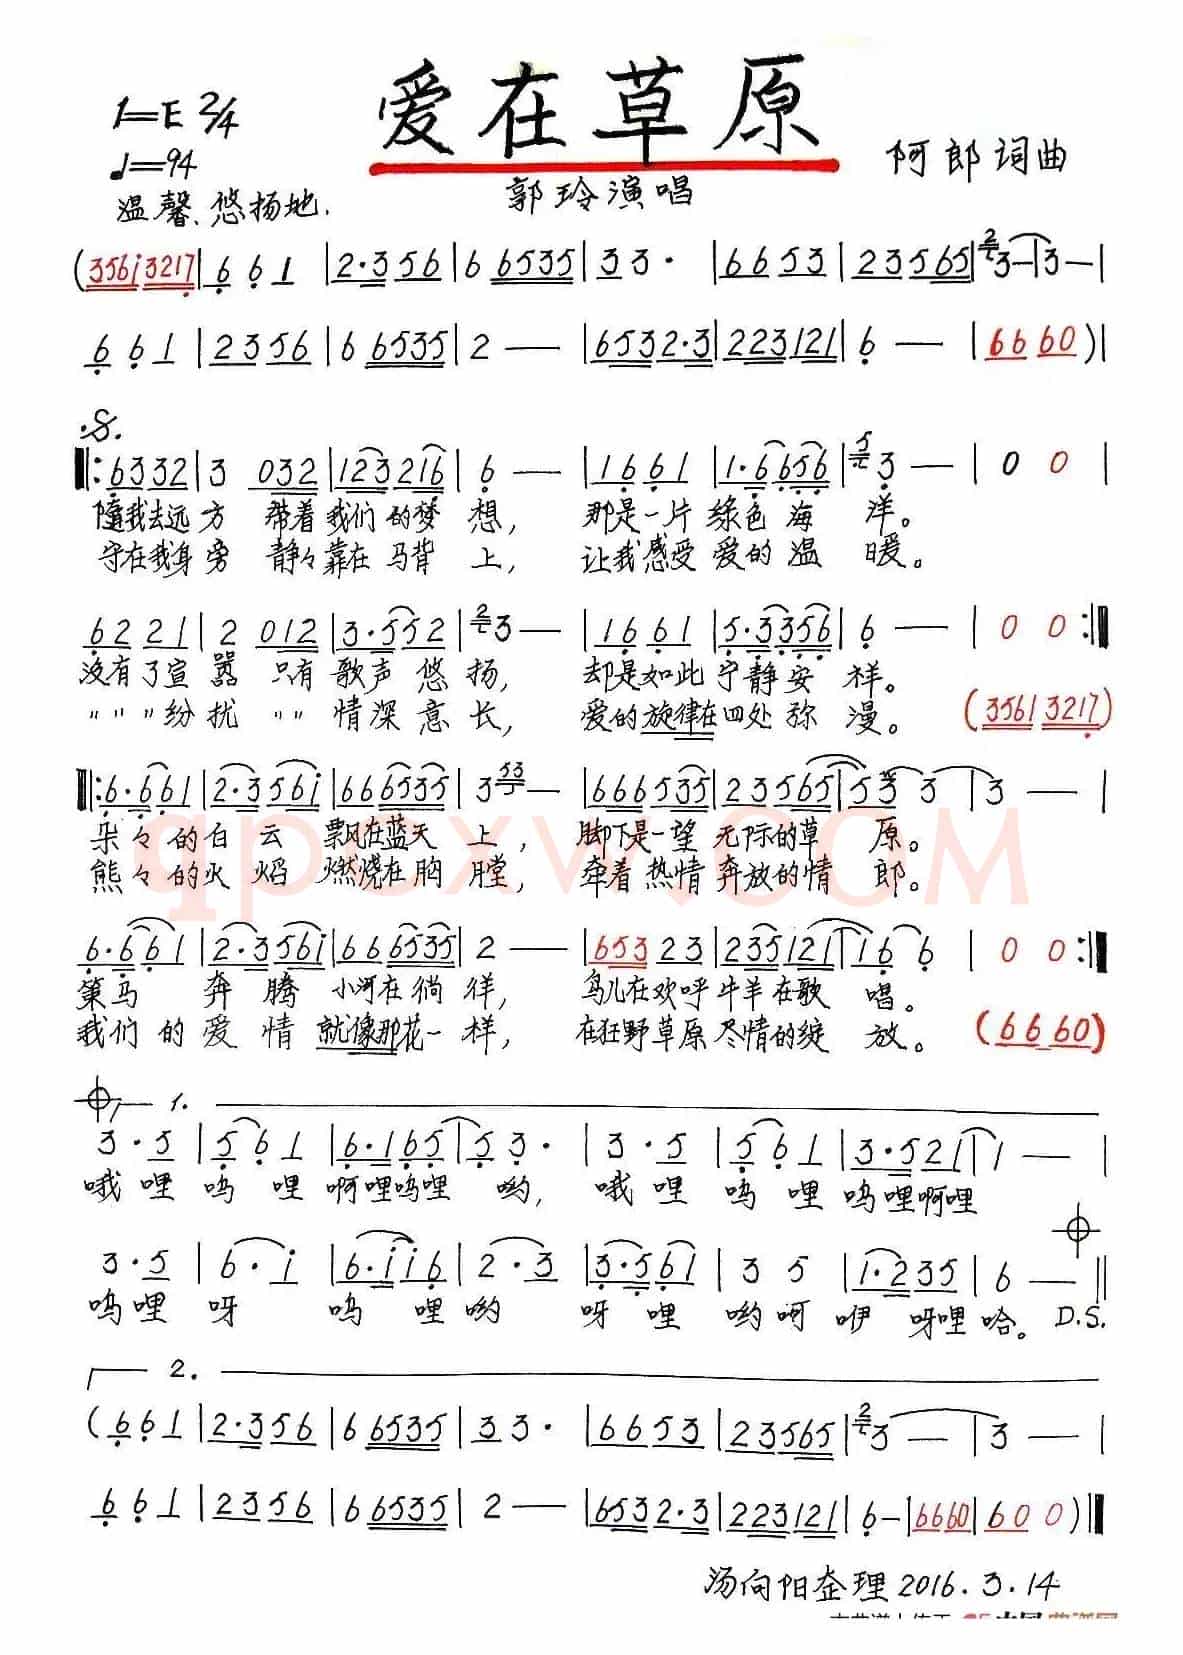 爱在草原
1=E 2/4
♩=94
阿郎词曲
温馨、悠扬地.
郭玲演唱
(356i 3217|6 6 1|2·356|6 6535|3 3·|6653|23565|3—|3—|
6 6 1|2356|6 6535|2—|6532·3|223121|6—|6660)|
𝄋
‖:6332|3 032|123216|6—|1661|1·6656|3—|0 0|
随我去远方 带着我们的梦想, 那是一片绿色海洋。
守在我身旁 静々靠在马背上, 让我感受爱的温暖。
6221|2 012|3·552|3—|1661|5·3356|6—|0 0:‖
没有了宣嚣 只有歌声悠扬, 却是如此宁静安祥。
〃〃〃纷扰 〃〃情深意长, 爱的旋律在四处弥漫。 (3561 3217)
‖:6·661|2·356i|666535|3—|666535|235655|53|3—|
朵々的白云 飘在蓝天上, 脚下是一望无际的草原。
熊々的火焰 燃烧在胸膛, 牵着热情奔放的情郎。
6·661|2·356i|666535|2—|65323|235121|16 6|0 0:‖
策马奔腾 小河在徜徉, 鸟儿在欢呼牛羊在歌唱。
我们的爱情 就像那花一样, 在狂野草原尽情的绽放。 (6660)
1.
3·5|561|6·165|5 3·|3·5|561|3·521|1—|
哦哩呜哩啊哩呜哩哟, 哦哩呜哩呜哩啊哩
3·5|6·i|6·ii6|2·3|3·561|3 5|1·235|6—‖
呜哩呀呜哩哟呀哩哟呵咿呀哩哈。 D.S.
2.
(6 6 1|2·356|6 6535|3 3·|6653|23565|3—|3—|
6 6 1|2356|6 6535|2—|6532·3|223121|6—|6660|600)‖
汤向阳整理2016.3.14